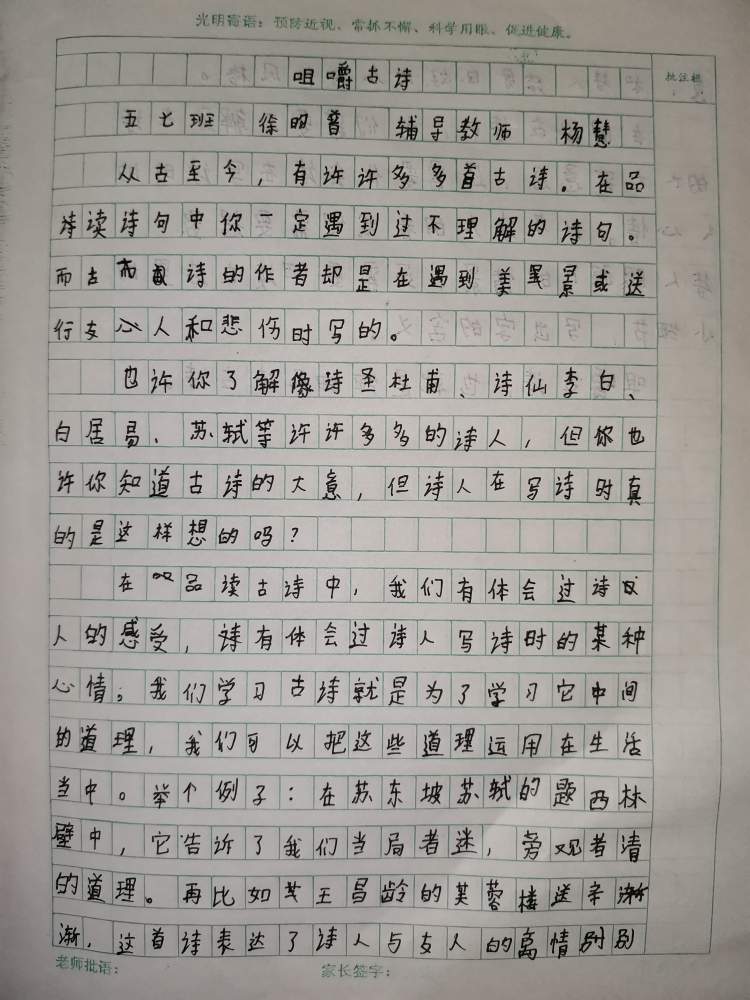 光明寄语：预防近视、常抓不懈、科学用眼、促进健康。
咀嚼古诗
批注栏
五七班 徐昀普 辅导教师 杨慧
从古至今，有许许多多首古诗。在品
诗读诗句中你一定遇到过不理解的诗句。
而古诗的作者却是在遇到美景或送
行友人和悲伤时写的。
也许你了解像诗圣杜甫、诗仙李白、
白居易、苏轼等许许多多的诗人，但你也
许你知道古诗的大意，但诗人在写诗时真
的是这样想的吗？
在品读古诗中，我们有体会过诗
人的感受，诗有体会过诗人写诗时的某种
心情。我们学习古诗就是为了学习它中间
的道理，我们可以把这些道理运用在生活
当中。举个例子：在苏东坡苏轼的题西林
壁中，它告许了我们当局者迷，旁观者清
的道理。再比如王昌龄的芙蓉楼送辛渐
渐，这首诗表达了诗人与友人的离情别别
老师批语： 家长签字：